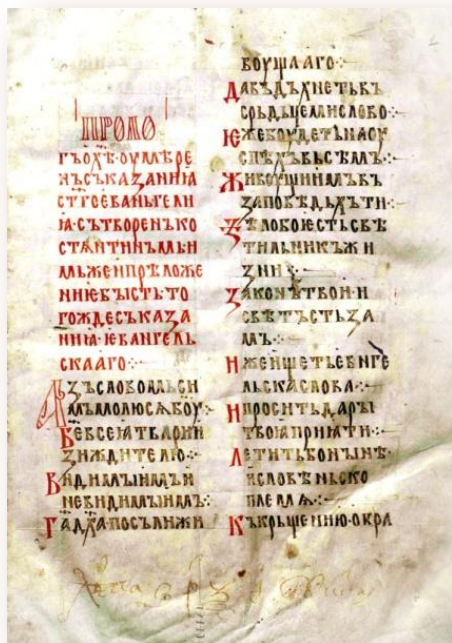 ПРОЛО
ГЪ·О·Х҃Ѣ·ОУМѢРЕ
НЪ СЪКАЗАНИꙖ
СТ҃ГО ЕВАНЬГЕЛИ
Ꙗ·СЪТВОРЕНЪ КО
СТАНТИНЪМЬ И
МЬЖЕ И ПРѢЛОЖЕ
НИѤ БЫСТЬ·ТО
ГОЖДЕ СЪКАЗА
НИꙖ ѤВАНГЕЛЬ
СКААГО⁘
АЗЪ СЛОВОМЬ СИ
МЬ МОЛЮ СѦ Б҃ОУ·
Б҃Е ВСЕꙖ ТВАРИ И
ЗИЖДИТЕЛЮ⁘
ВИДИМЫИМЪ И
НЕВИДИМЫИМЪ⁘
Г҃А Д҃ХА ПОСЪЛИ ЖИ
ВОУЩААГО⁘
ДА ВЪДЪХНЕТЬ ВЪ
СРЬДЬЦЕ МИ СЛОВО⁘
ЮЖЕ БОУДЕТЬ НА ОУ
СПѢХЪ ВЬСѢМЪ⁘
ЖИВОУЩИИМЪ ВЪ
ЗАПОВѢДЬХЪ ТИ⁘
ЅѢЛО БО ЮСТЬ СВѢ
ТИЛЬНИКЪ ЖИ
ЗНИ⁘
ЗАКОНЪ ТВОИ·И
СВѢТЪ СТЬЗА
МЪ⁘
ИЖЕ ИЩЕТЬ ЕВ҃НГЕ
ЛЬСКА СЛОВА⁘
И ПРОСИТЬ ДАРЫ
ТВОꙖ ПРИꙖТИ⁘
ЛЕТИТЬ БО НЫНѢ
И СЛОВѢНЬСКО
ПЛЕМѦ⁘
КЪ КРЬЩЕНИЮ·ОКРА